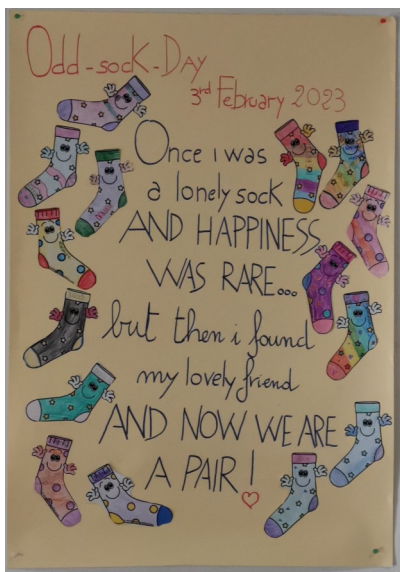 Odd-sock-Day
3rd February 2023
Once i was
a lonely sock
AND HAPPINESS
WAS RARE...
but then i found
my lovely friend
AND NOW WE ARE
A PAIR!